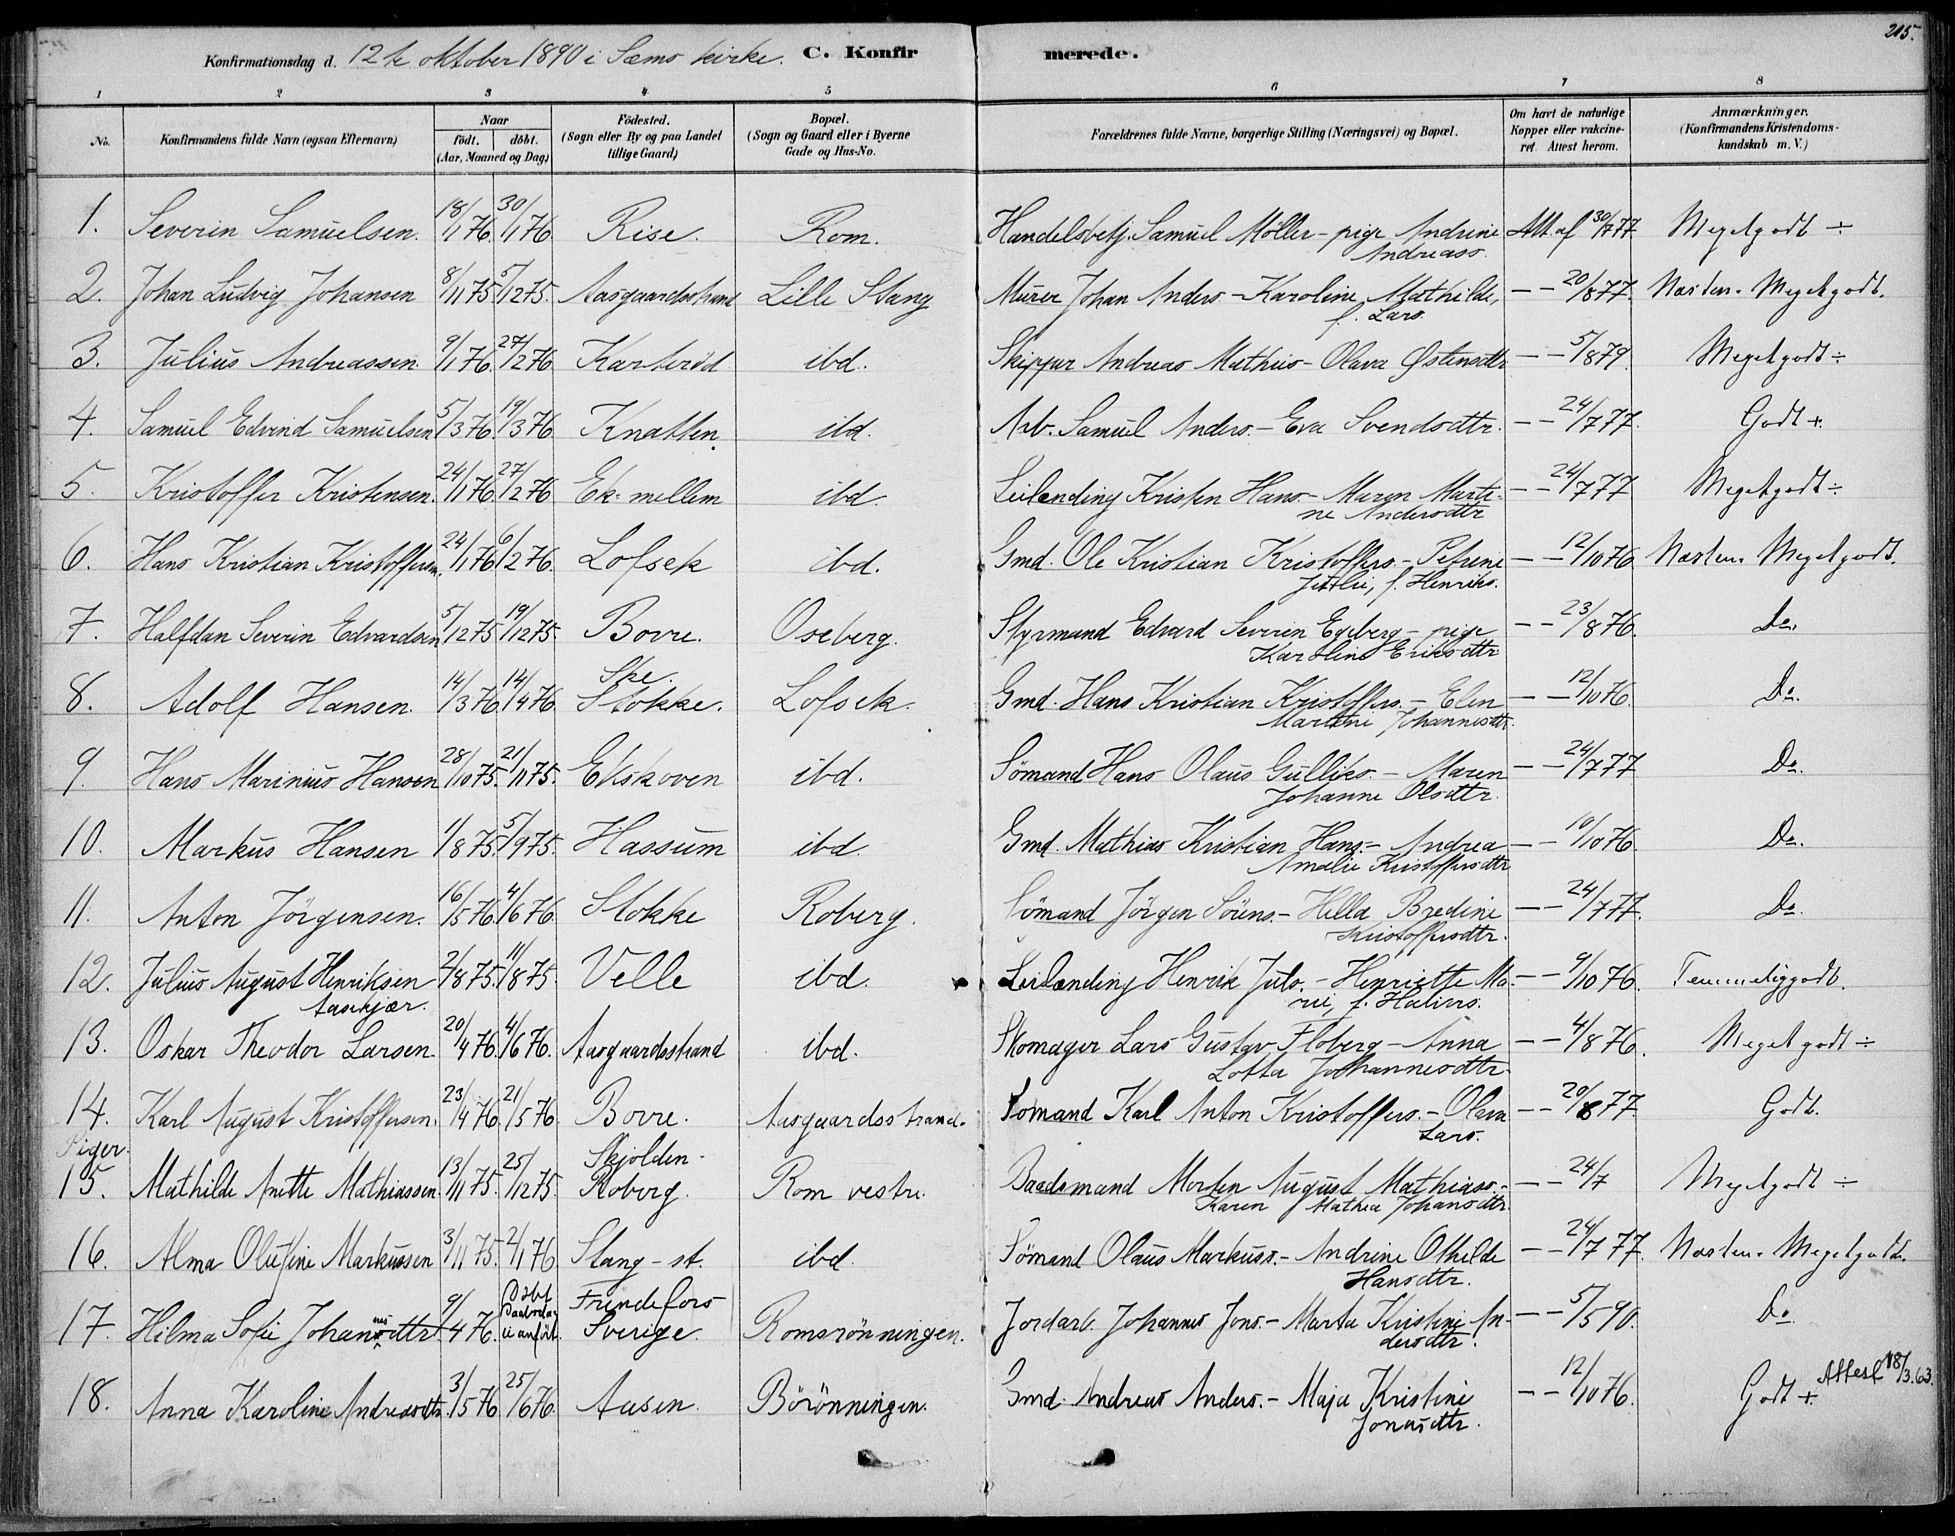 215.
Konfirmationsdag d. 12te oktober 1890 i Sæms kirke. C. Konfirmerede.
1 2 3 4 5 6 7 8
No. Konfirmandens fulde Navn (ogsaa Efternavn) Naar født. døbt. (Aar, Maaned og Dag) Fødested. (Sogn eller By og paa Landet tillige Gaard) Bopæl. (Sogn og Gaard eller i Byerne Gade og Hus-No. Forældrenes fulde Navne, borgerlige Stilling (Næringsvei) og Bopæl. Om havt de naturlige Kopper eller vakcineret. Attest herom. Anmærkninger. (Konfirmandens Kristendomskundskab m. V.)
1. Severin Samuelsen. 18/1 76. 30/1 76. Rise. Rom. Handelsbetj. Samuel Møller - pige Andrine Andreass. Att. af 30/7 77 Megetgodt ÷
2. Johan Ludvig Johansen 8/11 75. 5/12 75. Aasgaardsstrand Lille Stang Murer Johan Anders. - Karoline Mathilde, f. Lars. — — 20/8 77. Næsten Megetgodt.
3. Julius Andreassen. 9/1 76. 27/2 76. Karterød ibd. Skipper Andreas Mathis - Olava Østensdtr — — 5/8 79. Megetgodt ÷
4. Samuel Edvind Samuelsen 5/3 76. 19/3 76 Knatten ibd. Arb. Samuel Anders. - Eva Svendsdtr. — — 24/7 77. Godt +.
5. Kristoffer Kristensen. 24/1 76. 27/2 76 Ek-mellem ibd. Leilænding Kristen Hans. - Maren Martine Andersdtr — — 24/7 77 Megetgodt ÷
6. Hans Kristian Kristoffersen. 24/1 76 6/2 76. Lofsek ibd. Gmd. Ole Kristian Kristoffers. - Petrine Juttlie, f. Henriks. — — 12/10 76 Næsten Megetgodt.
7. Halfdan Severin Edvardsen 5/12 75 19/12 75. Borre. Oseberg. Styrmand Edvard Severin Egeberg - pige Karoline Eriksdtr — — 23/8 76. Do.
8. Adolf Hansen. 14/3 76. 14/4 76 Ske. Stokke. Lofsek. Gmd. Hans Kristian Kristoffers. - Elen Martine Johannesdtr. — — 12/10 76. Do.
9. Hans Marinius Hansen 28/10 75. 21/11 75. Ekskoven ibd. Sømand Hans Olaus Gulliks. - Maren Johanne Olsdtr. — — 24/7 77 Do.
10. Markus Hansen 1/8 75. 5/9 75. Hassum ibd. Gmd. Mathias Kristian Hans. - Andrea Amalie Kristoffersdtr — — 19/10 76. Do.
11. Anton Jörgensen. 16/5 76. 4/6 76. Stokke Roberg. Sømand Jörgen Sörens. - Hella Bredine Kristoffersdtr. — — 24/7 77. Do.
12. Julius August Henriksen Aaskjær. 2/8 75. 11/8 75. Velle ibd. Leilænding Henrik Juls. - Henriette Marie, f. Halvors. — — 9/10 76. Temmeliggodt.
13. Oskar Theodor Larsen. 20/4 76. 4/6 76. Aasgaardsstrand ibd. Skomager Lars Gustav Floberg - Anna Lotta Johannesdtr. — — 4/8 76. Megetgodt ÷
14. Karl August Kristoffersen. 23/4 76. 21/5 76. Borre. Aasgaardsstrand. Sømand Karl Anton Kristoffers. - Olava Lars. — — 20/8 77 Godt.
Piger.
15. Mathilde Anette Mathiassen 13/11 75. 25/12 75. Skjolden - Roberg. Rom vestre. Baadsmand Morten August Mathiass. - Karen Mathea Johansdtr. — — 24/7 Megetgodt ÷
16. Alma Olufine Markussen 3/11 75. 2/1 76. Stang - st. ibd. Sømand Olaus Markuss. - Andrine Othilde Hansdtr. — — 24/7 77. Næsten Megetgodt.
17. Hilma Sofie Johannesdtr. 9/4 76. Døbt Daabsdag ei anført. Frendefors Sverige. Romsrønningen. Jordarb. Johannes Jons. - Marta Kristine Andersdtr. — — 5/5 90. Do
18. Anna Karoline Andreasdtr 3/5 76 25/6 76. Aasen. Börönningen. Gmd. Andreas Anders. - Maja Kristine Jonasdtr. — — 12/10 76. Godt +. Attest 18/3.63.